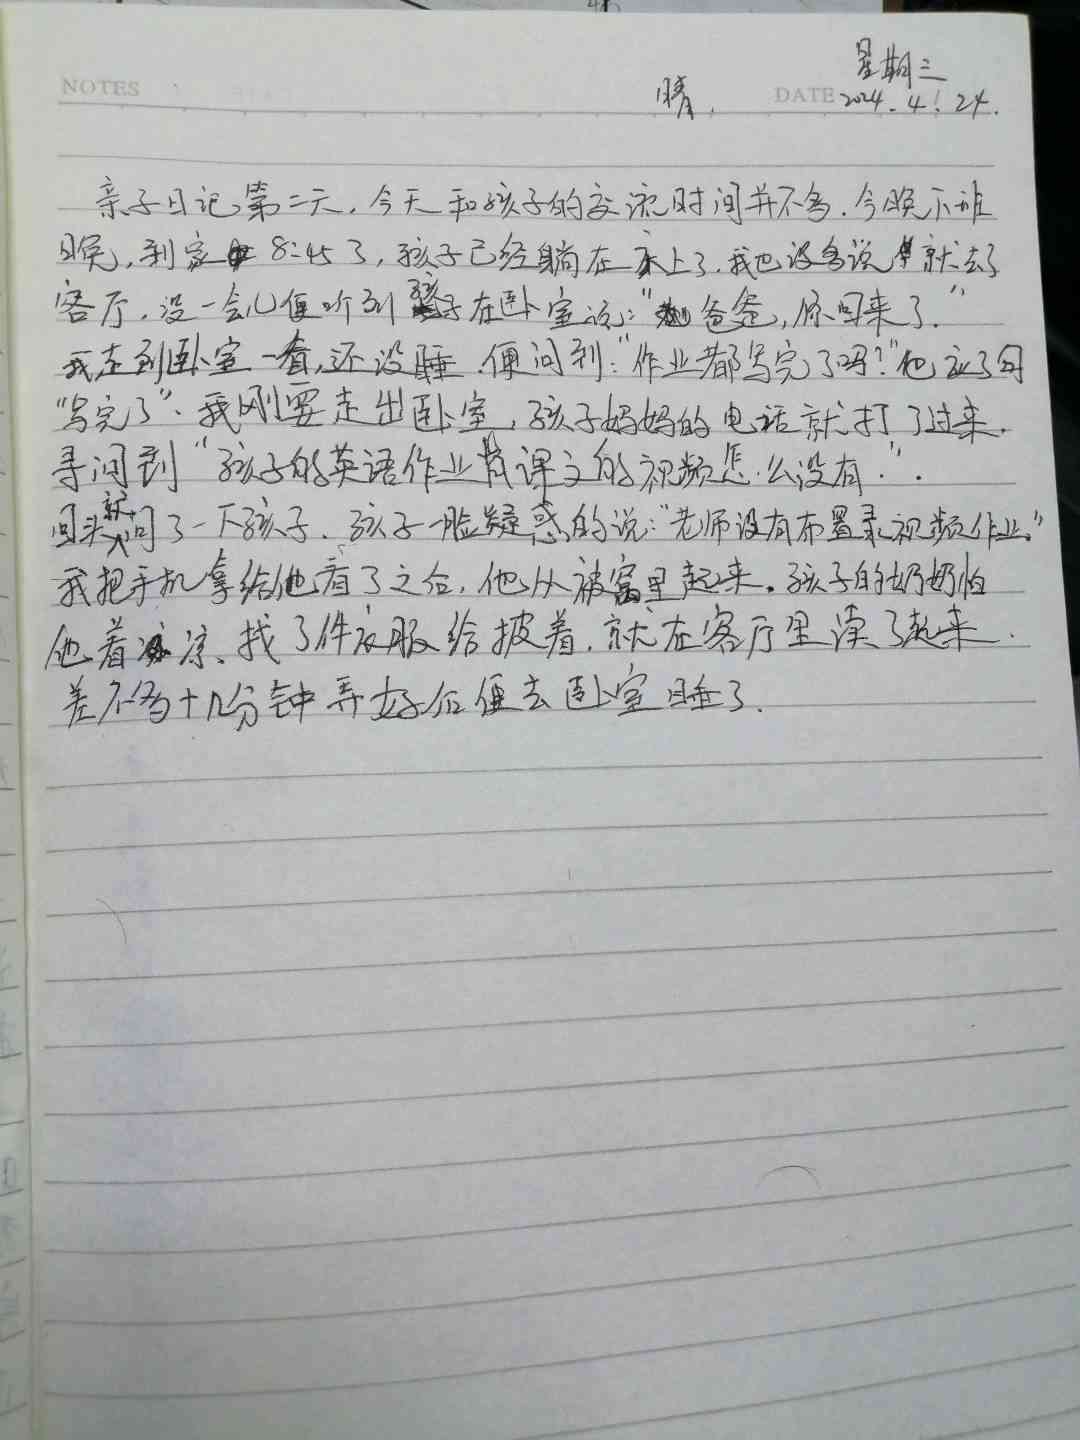 星期三
NOTES 晴. DATE 2024.4.24.
亲子日记第二天,今天和孩子的交流时间并不多.今晚下班
晚,到家 8:45了,孩子已经躺在床上了.我也没多说 就去了
客厅,没一会儿便听到孩子在卧室说:"爸爸,你回来了."
我走到卧室一看,还没睡.便问到:"作业都写完了吗?"他应了句
"写完了".我刚要走出卧室,孩子妈妈的电话就打了过来.
寻问到"孩子的英语作业背课文的视频怎么没有.".
回头就问了一下孩子.孩子一脸疑惑的说:"老师没有布置录视频作业."
我把手机拿给他看了之后,他从被窝里起来.孩子的奶奶怕
他着凉、找了件衣服给披着,就在客厅里读了起来.
差不多十几分钟弄好后便去卧室睡了.